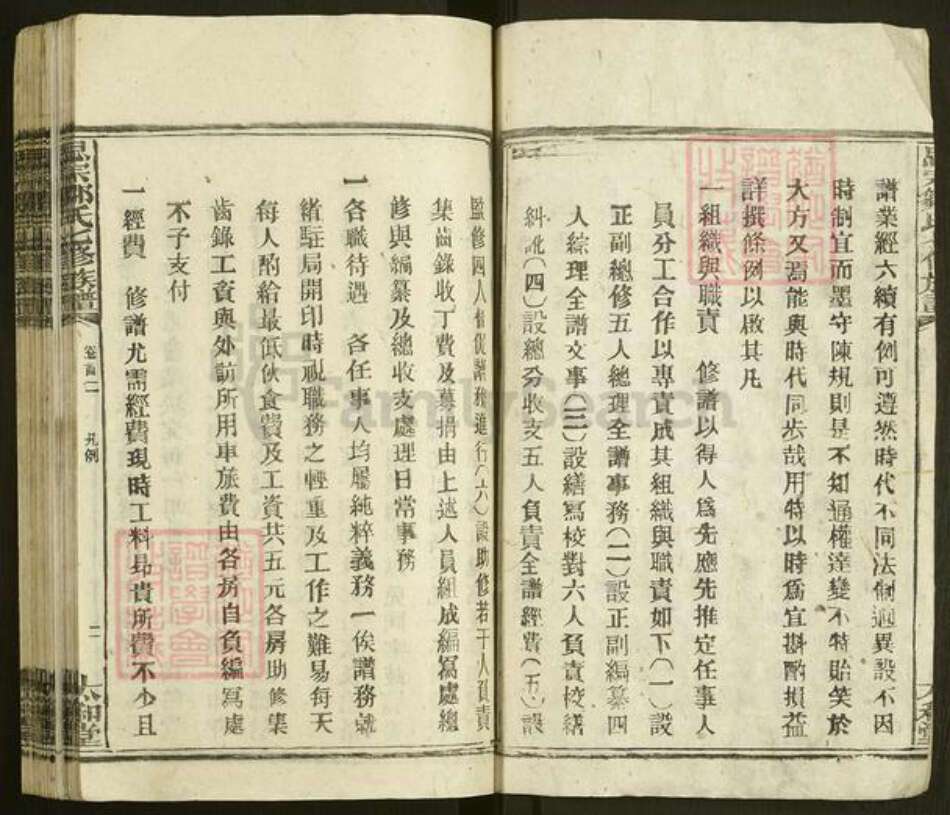 譜業經六續有例可遵然時代不同法制迥異設不因
時制宜而墨守陳規則是不知通權達變不特貽笑於
大方又焉能與時代同步哉用特以時爲宜斟酌損益
詳撰條例以啟其凡
一組織與職責 修譜以得人爲先應先推定任事人
員分工合作以專責成其組織與職責如下(一)設
正副總修五人總理全譜事務(二)設正副編纂四
人綜理全譜文事(三)設繕寫校對六人負責校繕
糾訛(四)設總分收支五人負責全譜經費(五)設
監修四人督促譜務進行(六)設助修若干人負責
集齒錄收丁費及募捐由上述人員組成編寫處總
修與編纂及總收支處理日常事務
一各職待遇 各任事人均屬純粹義務一俟譜務就
緒駐局開印時視職務之輕重及工作之難易每天
每人酌給最低伙食費及工資共五元各房助修集
齒錄工資與外訪所用車旅費由各房自負編寫處
不予支付
一經費 修譜尤需經費現時工料昂貴所費不少且
氏七修族譜
卷首一
凡例
二
和堂
FamilySearch